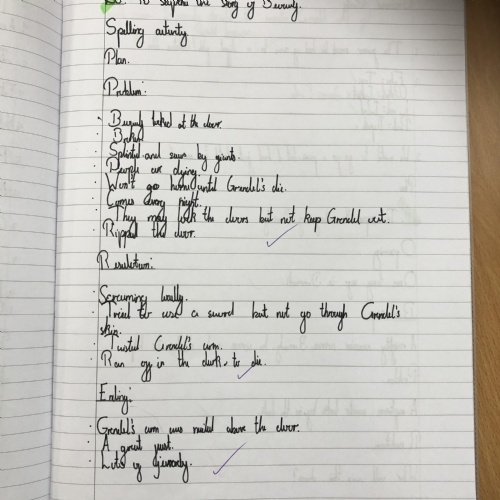 to the story of
Spelling activity
Plan.
Problem:
looked at the door.
Broken
Splinted and sewn by giants.
People are dying.
Won't go home until Grendel's die.
Comes every night.
They may lock the doors but not keep Grendel out.
Ripped the door.
Resolution:
Screaming loudly.
Tried to use a sword but not go through Grendel's
skin.
Twisted Grendel's arm.
Ran off in the dark, to die.
Ending:
Grendel's arm was nailed above the door.
A great
Lots of